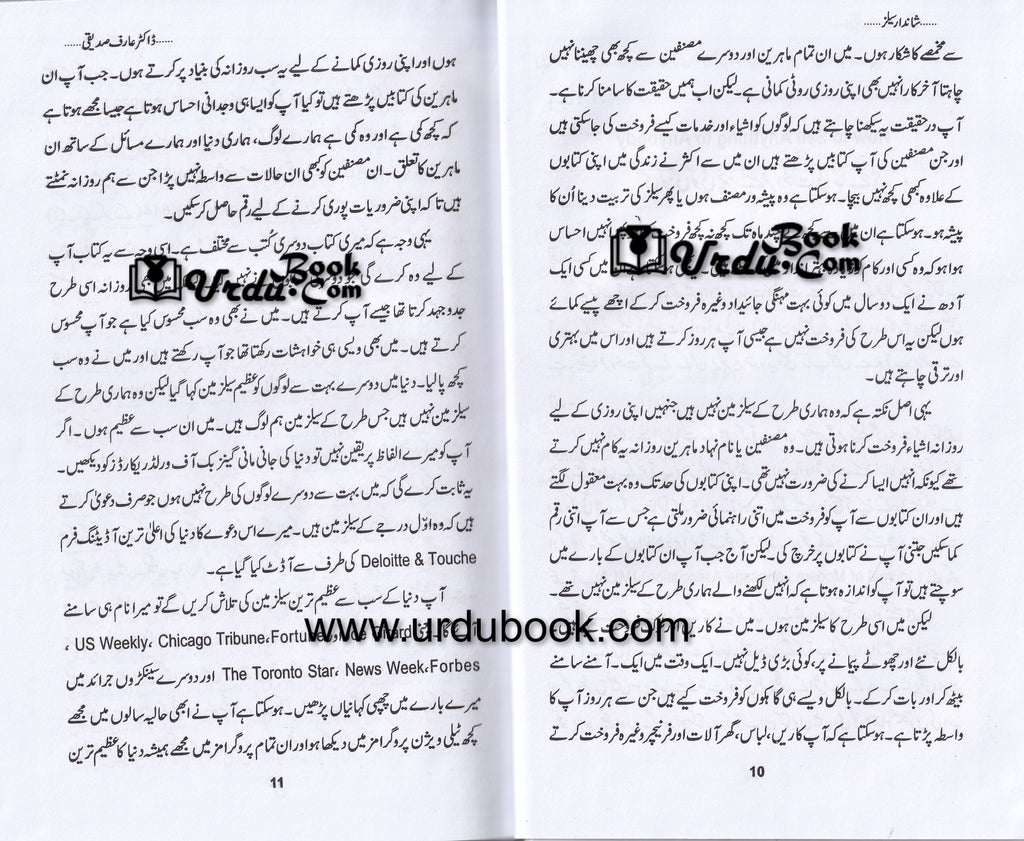 ......شاندار سیلز......
سے مخمصے کا شکار ہوں۔ میں ان تمام ماہرین اور دوسرے مصنفین سے کچھ بھی چھیننا نہیں
چاہتا آخر کار انہیں بھی اپنی روزی روٹی کمانی ہے۔ لیکن اب ہمیں حقیقت کا سامنا کرنا ہے۔
آپ درحقیقت یہ سیکھنا چاہتے ہیں کہ لوگوں کو اشیاء اور خدمات کیسے فروخت کی جا سکتی ہیں
اور جن مصنفین کی آپ کتابیں پڑھتے ہیں ان میں سے اکثر نے زندگی میں اپنی کتابوں
کے علاوہ کبھی کچھ نہیں بیچا۔ ہوسکتا ہے وہ پیشہ ور مصنف ہوں یا پھر سیلز کی تربیت دینا اُن کا
پیشہ ہو۔ ہوسکتا ہے ان میں سے چند ماہ تک کچھ نہ کچھ فروخت انہیں احساس
ہوا ہو کہ وہ کسی اور کام میں کسی ایک
آدھ نے ایک دو سال میں کوئی بہت مہنگی جائیداد وغیرہ فروخت کر کے اچھے پیسے کمائے
ہوں لیکن یہ اس طرح کی فروخت نہیں ہے جیسی آپ ہر روز کرتے ہیں اور اس میں بہتری
اور ترقی چاہتے ہیں۔
یہی اصل نکتہ ہے کہ وہ ہماری طرح کے سیلز مین نہیں ہیں جنہیں اپنی روزی کے لیے
روزانہ اشیاء فروخت کرنا ہوتی ہیں۔ وہ مصنفین یا نام نہاد ماہرین روزانہ یہ کام نہیں کرتے
تھے کیونکہ انہیں ایسا کرنے کی ضرورت نہیں تھی۔ اپنی کتابوں کی حد تک وہ بہت معقول لگتے
ہیں اور ان کتابوں سے آپ کو فروخت میں اتنی راہنمائی ضرور ملتی ہے جس سے آپ اتنی رقم
کما سکیں جتنی آپ نے کتابوں پر خرچ کی۔ لیکن آج جب آپ ان کتابوں کے بارے میں
سوچتے ہیں تو آپ کو اندازہ ہوتا ہے کہ انہیں لکھنے والے ہماری طرح کے سیلز مین نہیں تھے۔
لیکن میں اسی طرح کا سیلز مین ہوں۔ میں نے کاریں
بالکل نئے اور چھوٹے پیمانے پر، کوئی بڑی ڈیل نہیں۔ ایک وقت میں ایک۔ آمنے سامنے
بیٹھ کر اور بات کر کے۔ بالکل ویسے ہی گاہکوں کو فروخت کیے ہیں جن سے ہر روز آپ کا
واسطہ پڑتا ہے۔ ہوسکتا ہے کہ آپ کاریں، لباس، گھر آلات اور فرنیچر وغیرہ فروخت کرتے
10
......ڈاکٹر عارف صدیقی......
ہوں اور اپنی روزی کمانے کے لیے یہ سب روزانہ کی بنیاد پر کرتے ہوں۔ جب آپ ان
ماہرین کی کتابیں پڑھتے ہیں تو کیا آپ کو ایسا ہی وجدانی احساس ہوتا ہے جیسا مجھے ہوتا ہے
کہ کچھ کمی ہے اور وہ کمی ہے ہمارے لوگ، ہماری دنیا اور ہمارے مسائل کے ساتھ ان
ماہرین کا تعلق۔ ان مصنفین کو کبھی ان حالات سے واسطہ نہیں پڑا جن سے ہم روزانہ نمٹتے
ہیں تاکہ اپنی ضروریات پوری کرنے کے لیے رقم حاصل کر سکیں۔
یہی وجہ ہے کہ میری کتاب دوسری کُتب سے مختلف ہے۔ اسی وجہ سے یہ کتاب آپ
کے لیے وہ کرے گی جو روزانہ اسی طرح
جدوجہد کرتا تھا جیسے آپ کرتے ہیں۔ میں نے بھی وہ سب محسوس کیا ہے جو آپ محسوس
کرتے ہیں۔ میں بھی ویسی ہی خواہشات رکھتا تھا جو آپ رکھتے ہیں اور میں نے وہ سب
کچھ پا لیا۔ دنیا میں دوسرے بہت سے لوگوں کو عظیم سیلز مین کہا گیا لیکن وہ ہماری طرح کے
سیلز مین نہیں ہیں جس طرح کے سیلز مین ہم لوگ ہیں۔ میں ان سب سے عظیم ہوں۔ اگر
آپ کو میرے الفاظ پر یقین نہیں تو دنیا کی جانی مانی گینیز بک آف ورلڈ ریکارڈز کو دیکھیں۔
یہ ثابت کرے گی کہ میں بہت سے دوسرے لوگوں کی طرح نہیں ہوں جو صرف دعویٰ کرتے
ہیں کہ وہ اوّل درجے کے سیلز مین ہیں۔ میرے اس دعوے کا دنیا کی اعلیٰ ترین آڈیٹنگ فرم
Deloitte & Touche کی طرف سے آڈٹ کیا گیا ہے۔
آپ دنیا کے سب سے عظیم ترین سیلز مین کی تلاش کریں گے تو میرا نام ہی سامنے
US Weekly، Chicago Tribune،
The Toronto Star، News Week،Forbes اور دوسرے سینکڑوں جرائد میں
میرے بارے میں چھپی کہانیاں پڑھیں۔ ہوسکتا ہے آپ نے ابھی حالیہ سالوں میں مجھے
کچھ ٹیلی ویژن پروگرامز میں دیکھا ہو اور ان تمام پروگرامز میں مجھے ہمیشہ دنیا کا عظیم ترین
11
Urdu Book.Com
Urdu Book.Com
www.urdubook.com